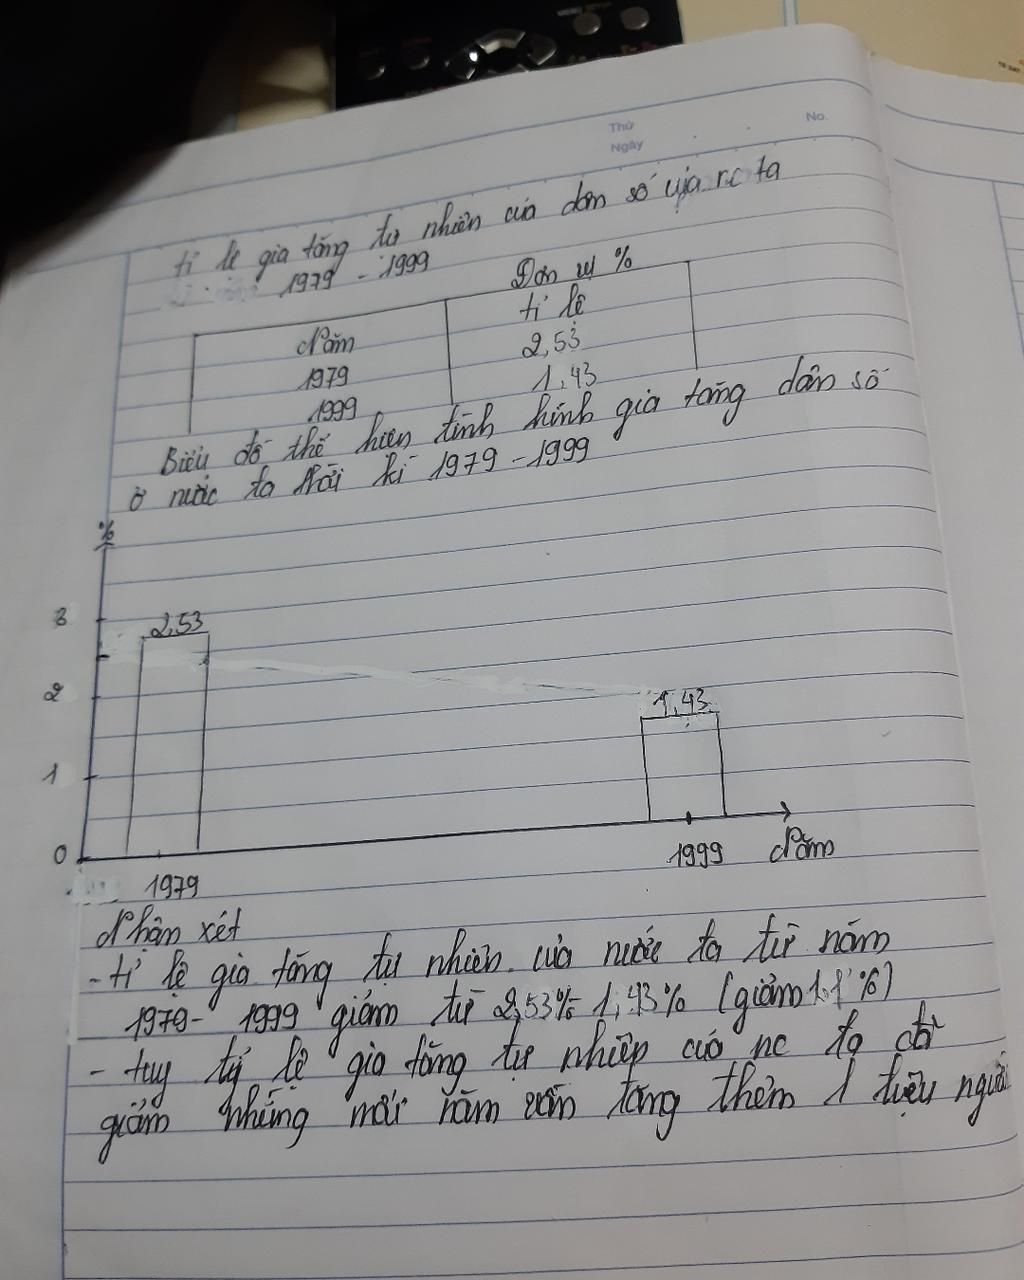 Thứ
Ngày
No.
tỉ lệ gia tăng tự nhiên của dân số của nc ta
1979 - 1999
Đơn vị %
Năm tỉ lệ
1979 2,53
1999 1,43
Biểu đồ thể hiện tình hình gia tăng dân số
ở nước ta thời kì 1979 - 1999
%
3
2,53
2
1,43
1
0
1979
1999 Năm
Nhận xét
- tỉ lệ gia tăng tự nhiên của nước ta từ năm
1979 - 1999 giảm từ 2,53% 1,43% (giảm 1,1%)
- tuy tỷ lệ gia tăng tự nhiên của nc ta đã
giảm nhưng mỗi năm vẫn tăng thêm 1 triệu người